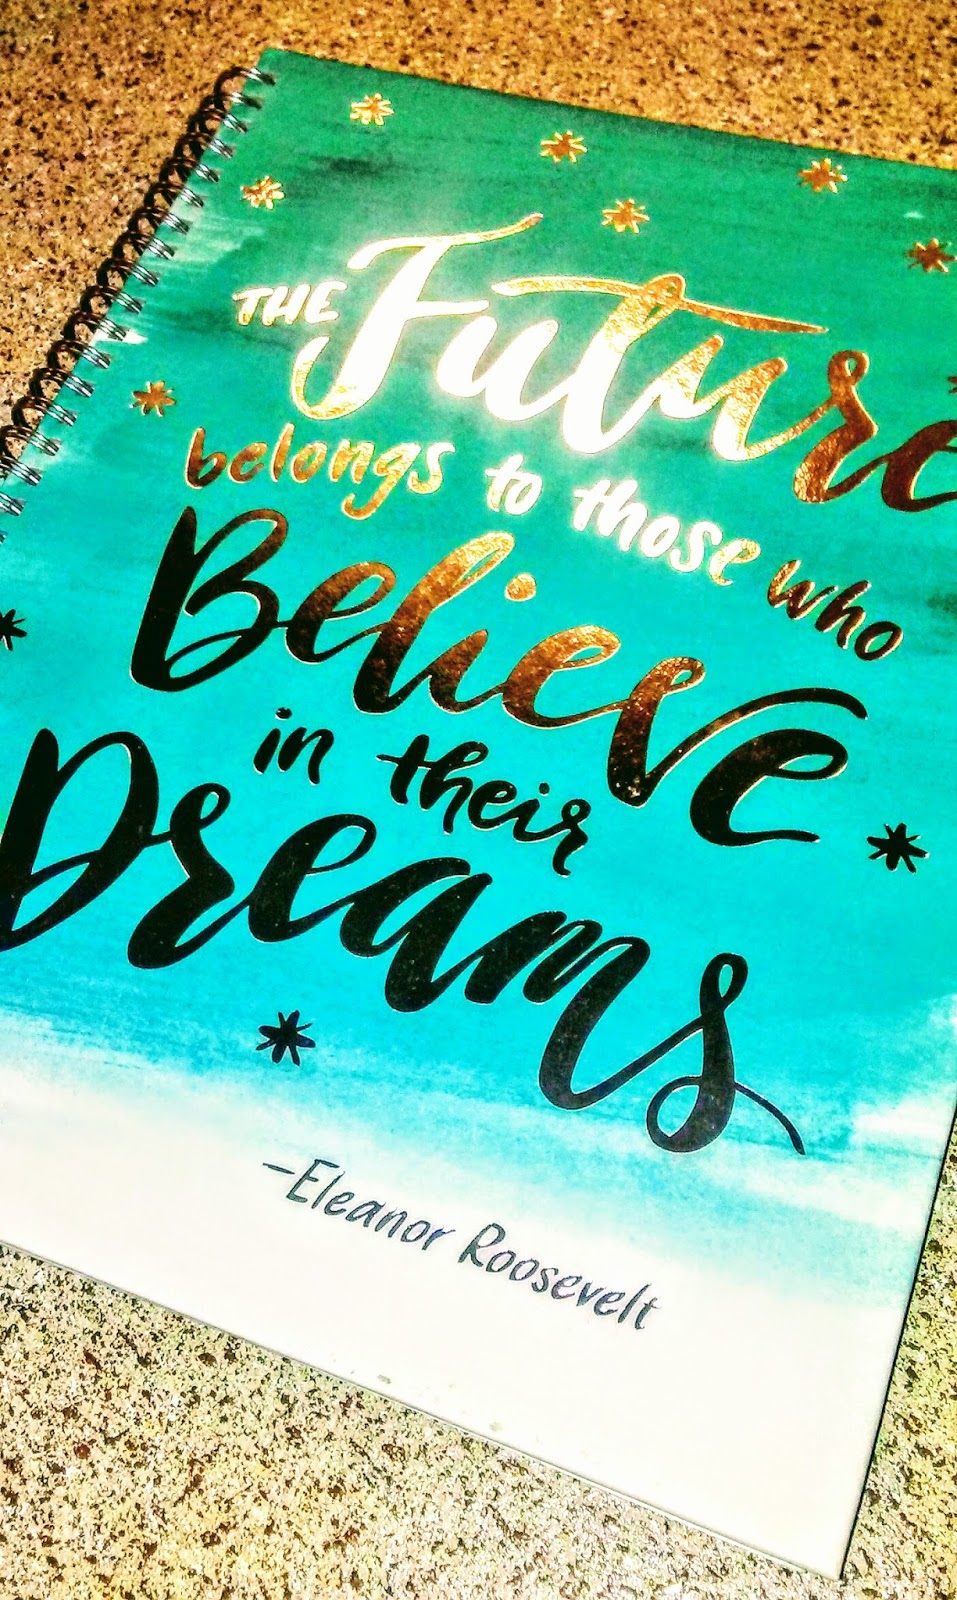 THE Future
belongs to those who
Believe
in their
Dreams
-Eleanor Roosevelt